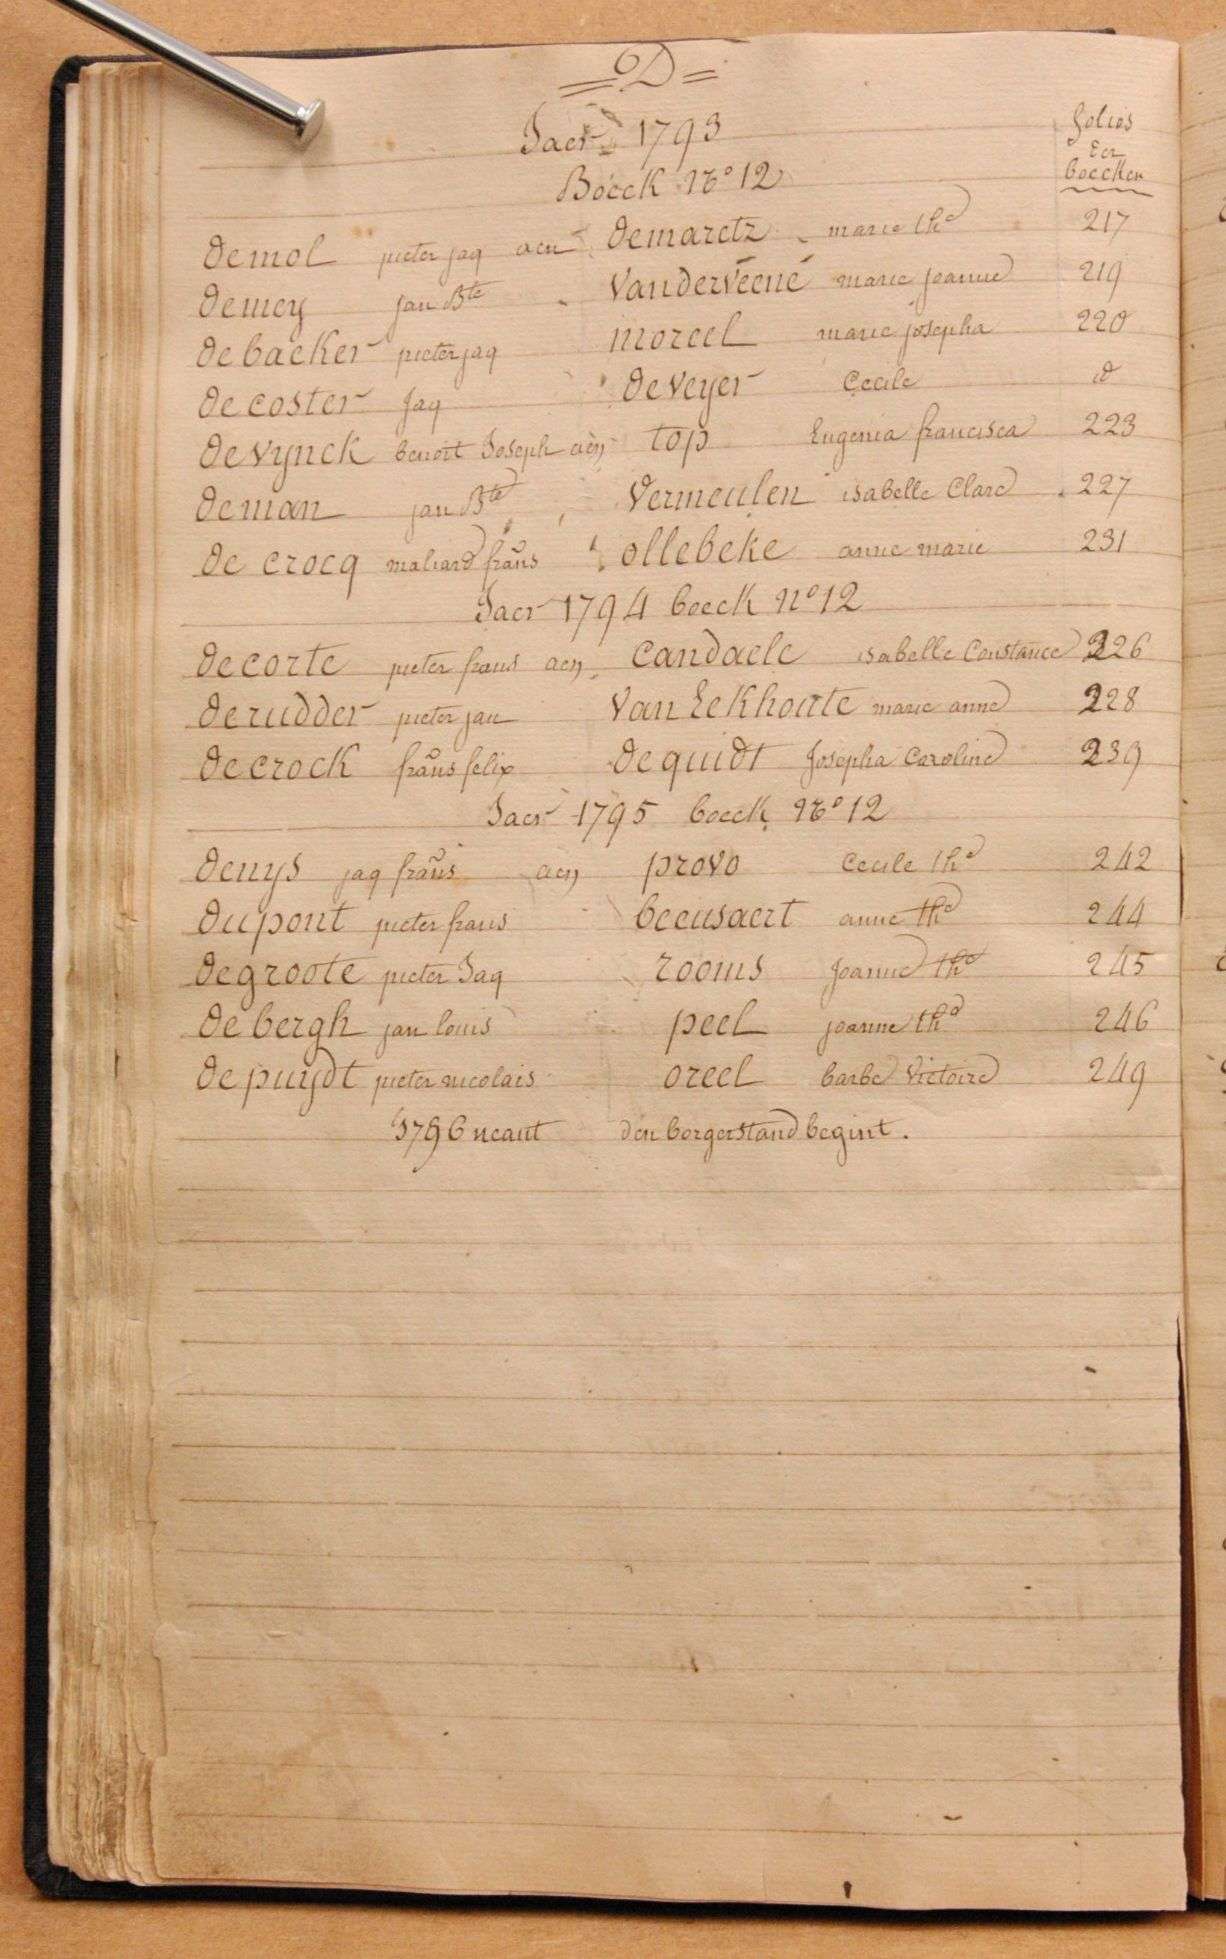 = D =
Jaer 1793
folios
Der
boecken
Boeck No 12
demol pieter jaq aen demaretz marie the 217
demey jan Bte Vanderveene marie joanne 219
debacker pieter jaq moreel marie josepha 220
decoster Jaq deveyer Cecile d
devynck benoit Joseph aen top Eugenia francisca 223
deman jan Bte Vermeulen isabelle Clare 227
de crocq maliard frans ollebeke anne marie 231
Jaer 1794 boeck no 12
decorte pieter frans aen Candaele isabelle Constance 226
derudder pieter jan Van Eekhoutte marie anne 228
decrock frans felix dequidt Josepha Caroline 239
Jaer 1795 boeck No 12
denys jaq frans aen provo Cecile the 242
dupont pieter frans beeusaert anne the 244
degroote pieter Jaq rooms Joanne the 245
debergh jan louis peel joanne the 246
depuydt pieter nicolais oreel barbe Victoire 249
1796 neant den borgerstand begint.